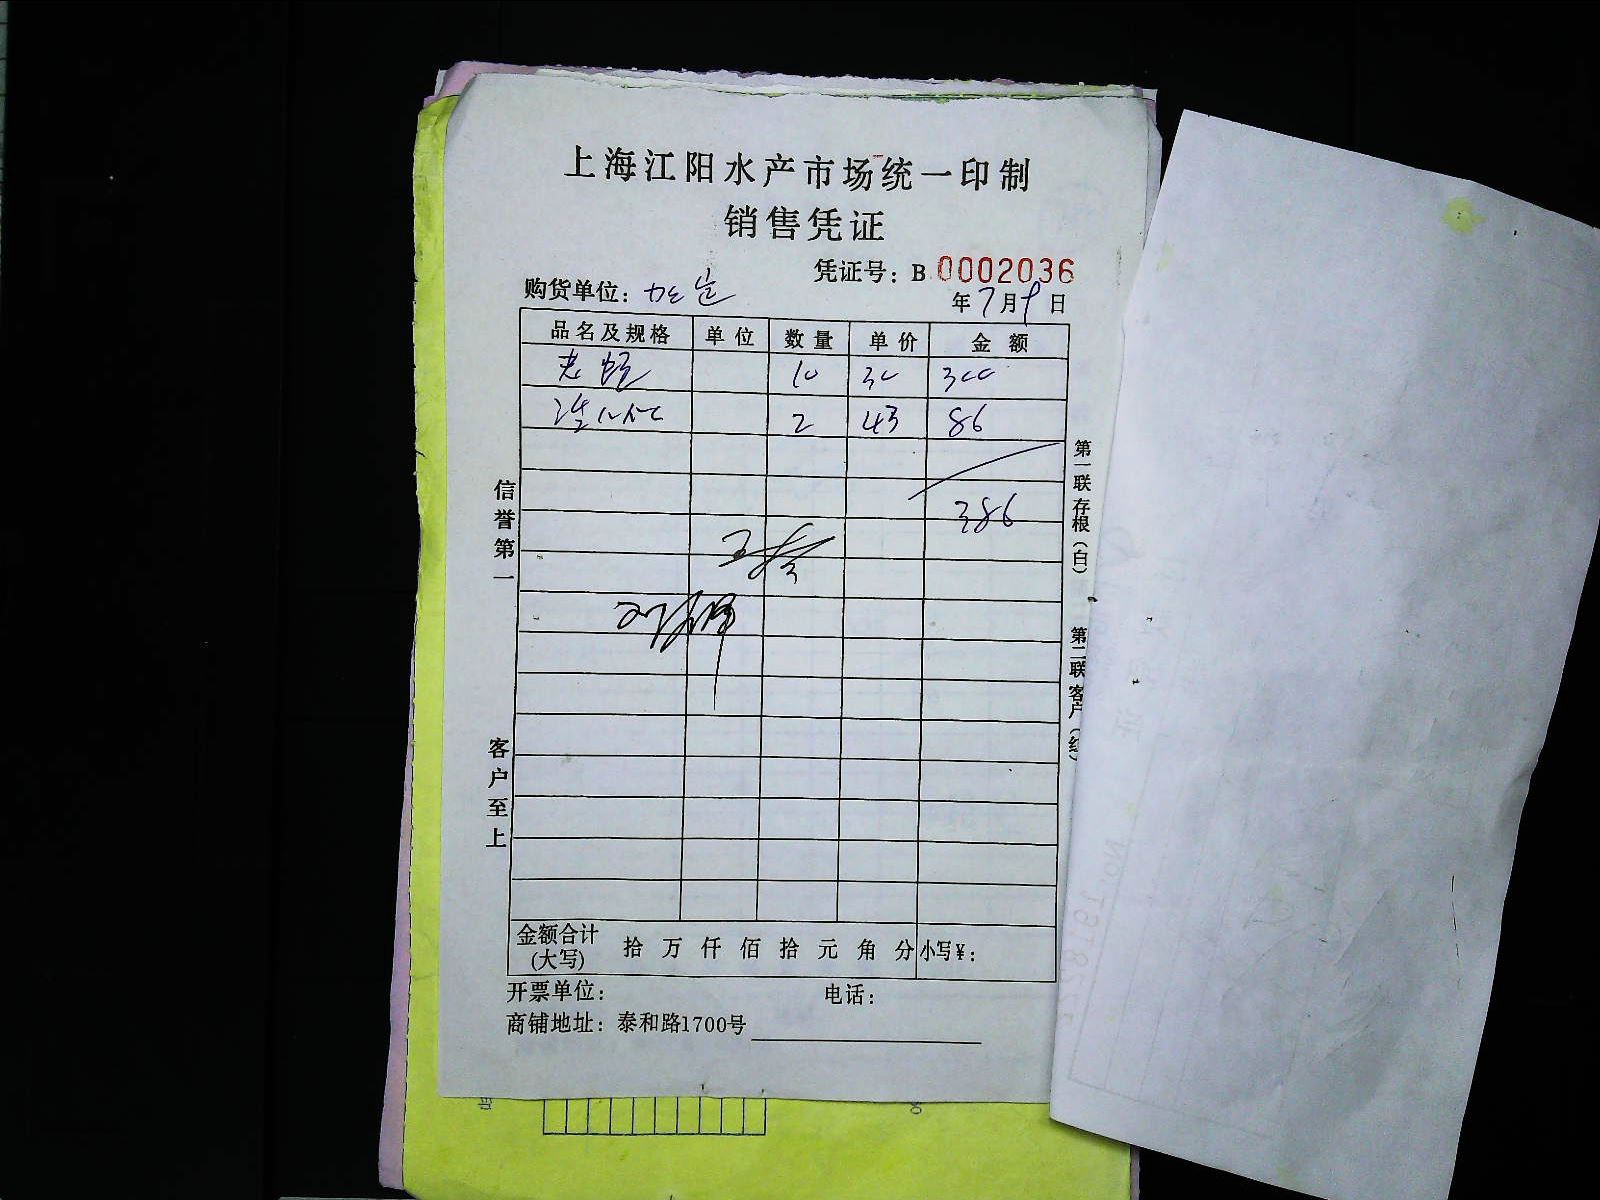 上海江阳水产市场统一印制
销售凭证
凭证号：B 0002036
购货单位：
年 7 月 9 日
品名及规格 单位 数量 单价 金额
10 30 300
2 43 86
386
信誉第一
客户至上
第一联存根（白）
第二联客户（红）
金额合计（大写） 拾 万 仟 佰 拾 元 角 分 小写¥：
开票单位： 电话：
商铺地址：泰和路1700号